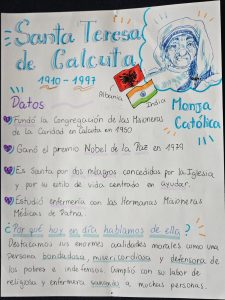 Santa Teresa
de Calcuta
1910 - 1997
Albania
India
Monja
Católica
Datos
Fundó la Congregación de las Misioneras
de la Caridad en Calcuta en 1950
Ganó el premio Nobel de la Paz en 1979
Es Santa por dos milagros concedidos por la Iglesia
y por su estilo de vida centrado en ayudar.
Estudió enfermería con las Hermanas Misioneras
Médicas de Patna.
¿Por qué hoy en día hablamos de ella?
Destacamos sus enormes cualidades morales como una
persona bondadosa, misericordiosa y defensora de
los pobres e indefensos. Cumplió con su labor de
religiosa y enfermera salvando a muchas personas.